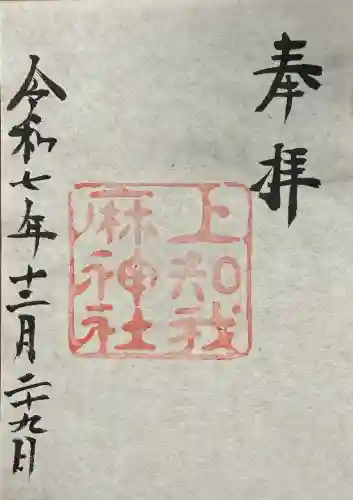 奉拝
上知我
麻神社
令和七年十二月二十九日